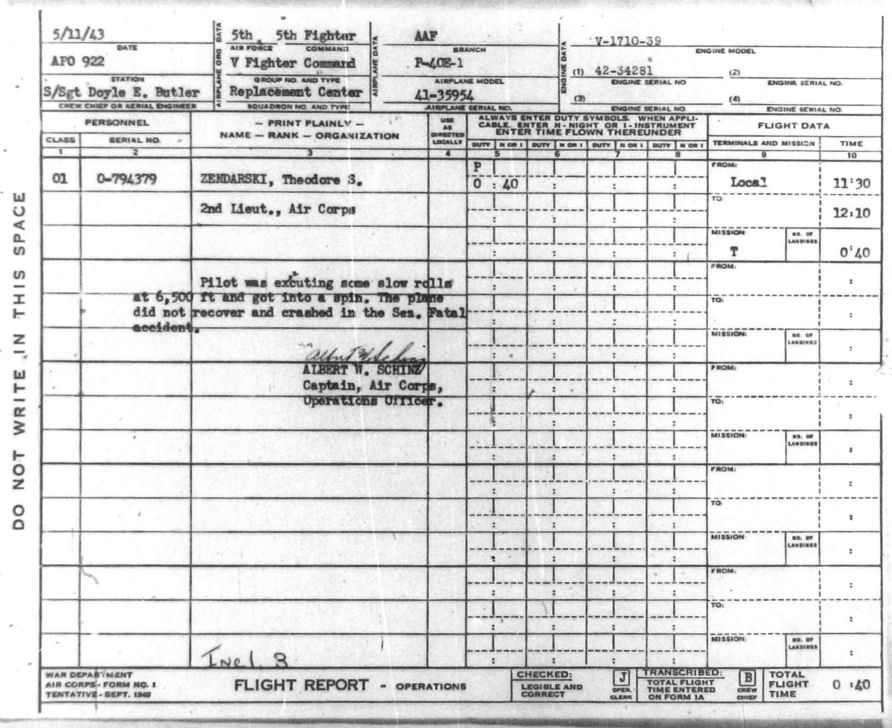 5/11/43
DATE
APO 922
STATION
S/Sgt Doyle E. Butler
CREW CHIEF OR AERIAL ENGINEER
AIRPLANE ORG DATA
5th 5th Fighter
AIR FORCE COMMAND
V Fighter Command
GROUP NO. AND TYPE
Replacement Center
SQUADRON NO. AND TYPE
AIRPLANE DATA
AAF
BRANCH
P-40E-1
AIRPLANE MODEL
41-35954
AIRPLANE SERIAL NO.
ENGINE DATA
V-1710-39
ENGINE MODEL
(1) 42-34281 (2)
ENGINE SERIAL NO ENGINE SERIAL NO.
(3) (4)
ENGINE SERIAL NO. ENGINE SERIAL NO.
PERSONNEL
CLASS SERIAL NO.
— PRINT PLAINLY —
NAME — RANK — ORGANIZATION
USE AS DIRECTED LOCALLY
ALWAYS ENTER DUTY SYMBOLS. WHEN APPLI-
CABLE. ENTER N-NIGHT OR I-INSTRUMENT
ENTER TIME FLOWN THEREUNDER
DUTY N OR I DUTY N OR I DUTY N OR I DUTY N OR I
FLIGHT DATA
TERMINALS AND MISSION TIME
1 2 3 4 5 6 7 8 9 10
01 0-794379 ZENDARSKI, Theodore S.
P
0 : 40
FROM: Local 11:30
2nd Lieut., Air Corps
TO: 12:10
MISSION NO. OF LANDINGS
T 0:40
Pilot was excuting some slow rolls
at 6,500 ft and got into a spin. The plane
did not recover and crashed in the Sea. Fatal
accident.
Albert W Schinz
ALBERT W. SCHINZ
Captain, Air Corps,
Operations Officer.
FROM:
TO:
MISSION: NO. OF LANDINGS
FROM:
TO:
MISSION NO. OF LANDINGS
FROM:
TO:
MISSION NO. OF LANDINGS
FROM:
TO:
MISSION NO. OF LANDINGS
Incl. 3
WAR DEPARTMENT
AIR CORPS-FORM NO. 1
TENTATIVE-SEPT. 1940
FLIGHT REPORT - OPERATIONS
CHECKED:
LEGIBLE AND
CORRECT
J
OPER. CLERK
TRANSCRIBED:
TOTAL FLIGHT
TIME ENTERED
ON FORM 1A
B
CREW CHIEF
TOTAL
FLIGHT
TIME
0 :40
DO NOT WRITE IN THIS SPACE